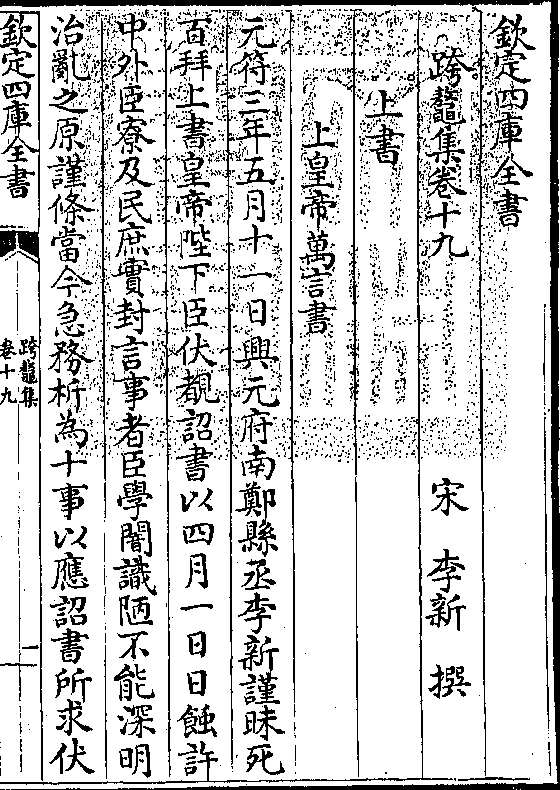 欽定四庫全書
跨鼇集卷十九
宋 李新 撰
上書
上皇帝萬言書
元符三年五月十一日興元府南鄭縣丞李新謹昧死
百拜上書皇帝陛下臣伏覩詔書以四月一日日蝕許
中外臣寮及民庶實封言事者臣學闇識陋不能深明
治亂之原謹條當今急務析為十事以應詔書所求伏
欽定四庫全書
跨鼇集
卷十九
一